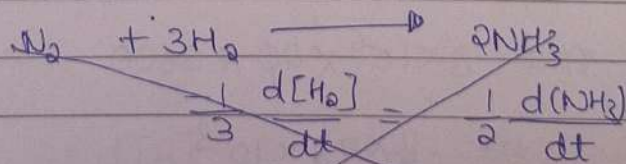 N₂ + 3H₂ ⟶ 2NH₃
-1/3 d[H₂]/dt = 1/2 d(NH₃)/dt